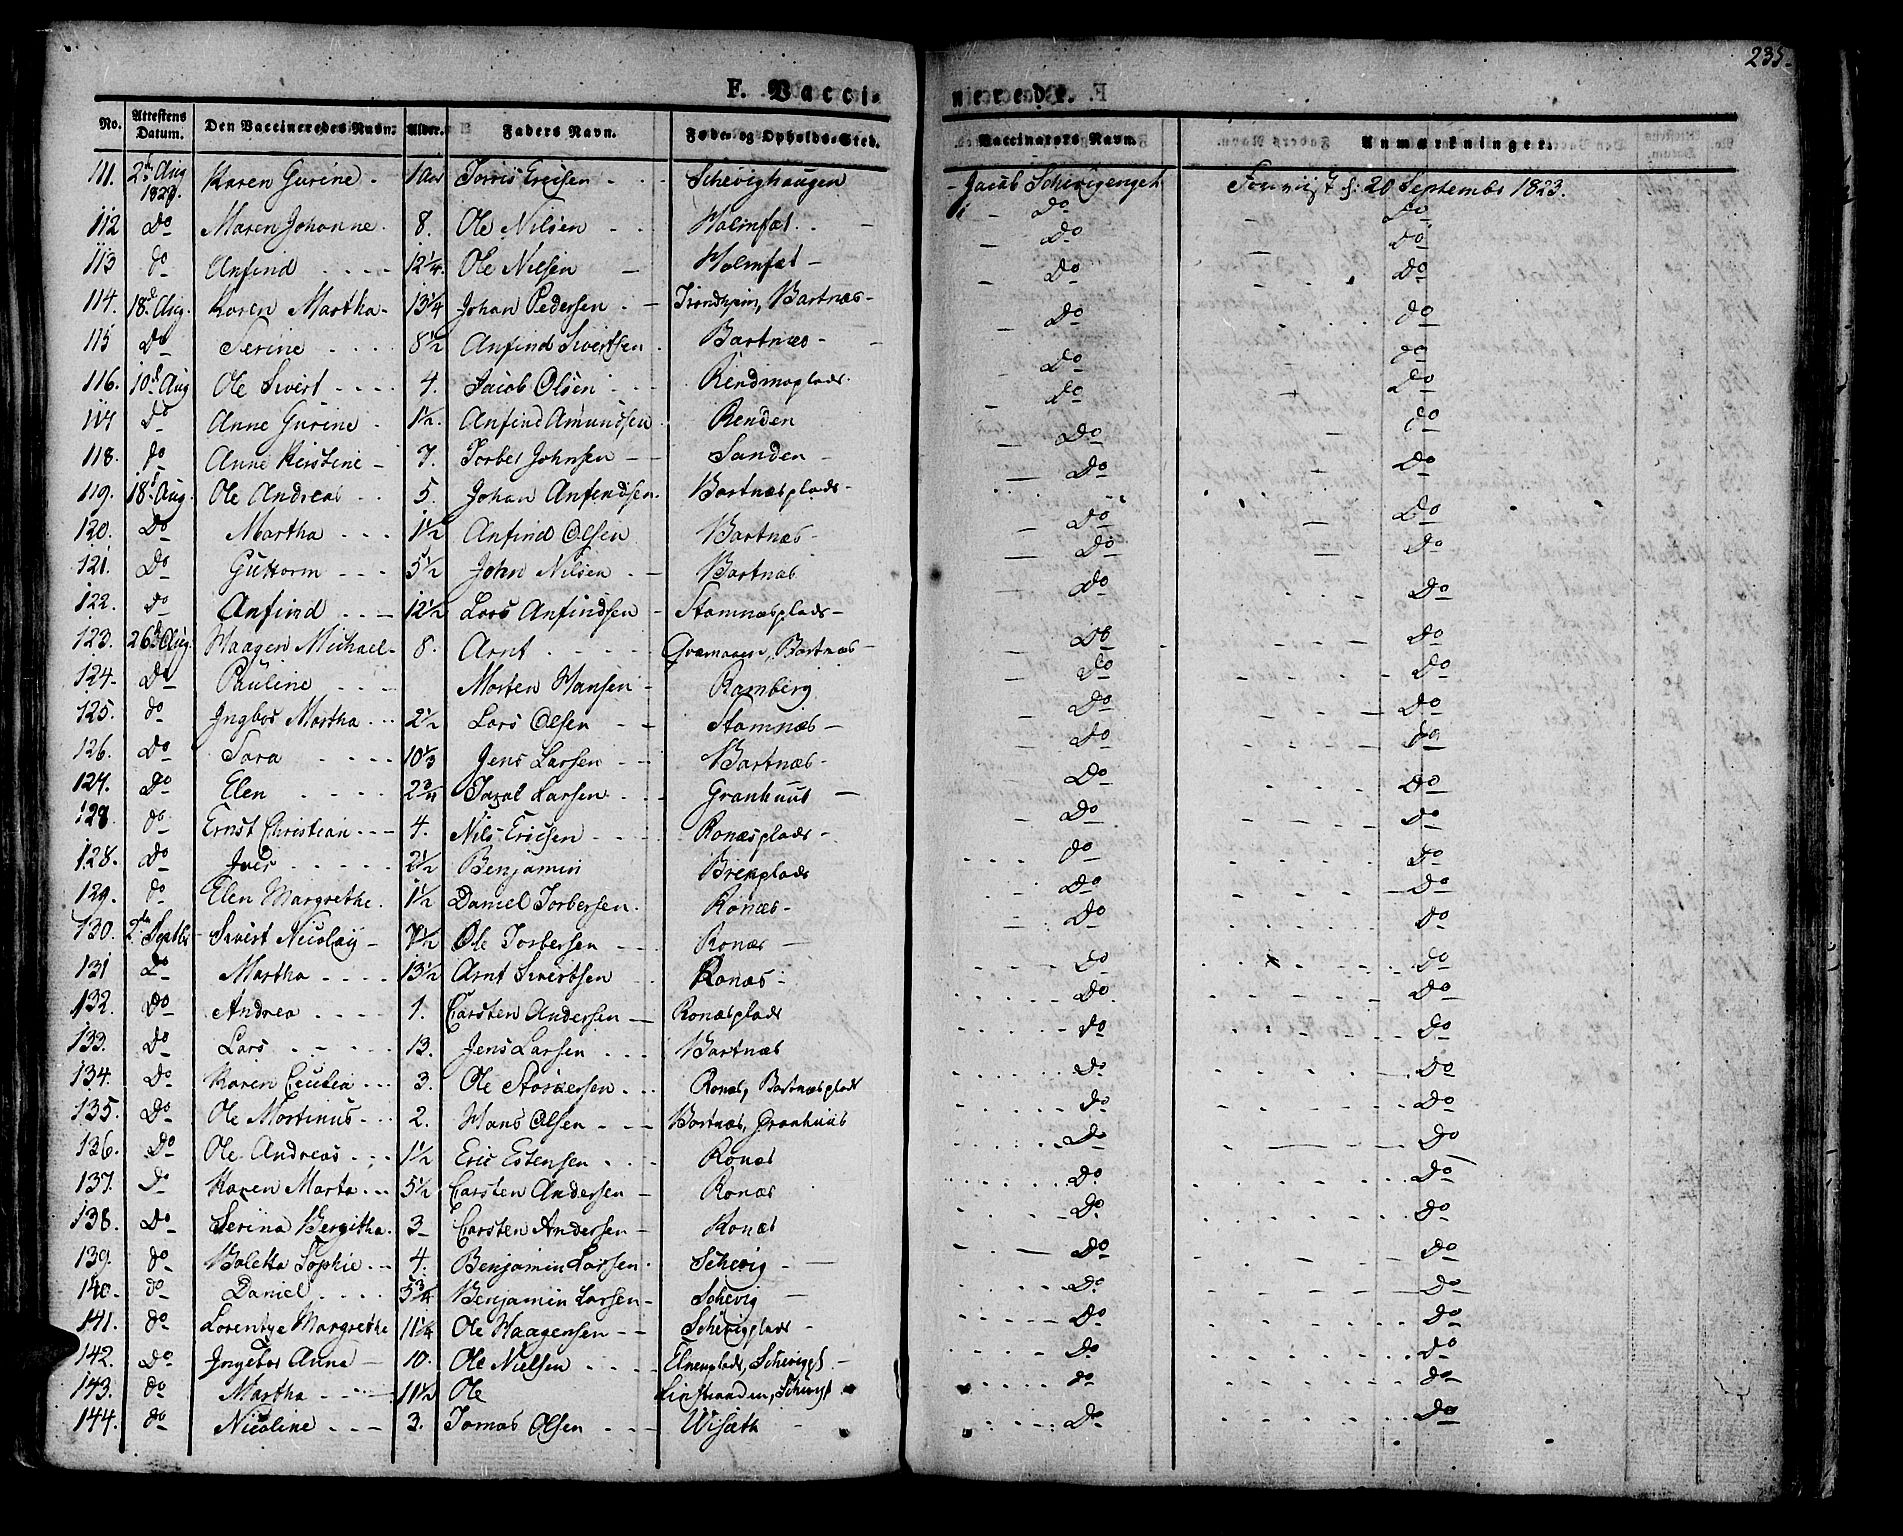 235.
F. Vacci- nerede. 
No. Attestens Datum. Den Vaccineredes Navn. Alder. Faders Navn. Føde- og Opholds-Sted. Vaccinators Navn. Anmærkninger.
111. 2d Aug 1823. Karen Gurine - 1 Aar Torris Ericsen - - - Schevighaugen - Jacob Schevigenget f: 20 Septembr 1823.
112 Do Maren Johanne. 8. Ole Nilsen - - Holmset. - - Do - Do
113 do Anfind - - - - 12 1/4. Ole Nilsen - Holmset - - Do - Do
114. 18d Aug. Karen Martha - 13 1/4 Johan Pedersen - - Trondheim, Bartnæs - - Do - - Do
115 Do Serine - - - - 8 1/2 Anfind Sivertsen. Bartnæs - - Do - do
116. 10d Aug Ole Sivert - - - - 4. Jacob Olsen - - - Rendmsplads. Do - do
117 Do Anne Gurine - 1 1/2. Anfind Amundsen. Renden - Do Do
118. do Anne Kirstine - 7. Torber Johnsen - - Sanden - - Do - do
119. 18d Aug. Ole Andreas - - 5. Johan Anfindsen. Bartnæsplads - Do - Do
120. Do Martha - - - 1 1/2 Anfind Olsen Bartnæs - - Do - Do
121. Do Guttorm - - - 5 1/2 John Nilsen - - Bartnæs - Do - Do
122. do Anfind - - - 12 1/2 Lars Anfindsen - Stamnæsplads - - Do Do
123. 26d Aug. Haagen Michael - 8. Arnt - - - - , Bartnæs - - Do - Do
124. Do Pauline - - - Morten Hansen - Ramberg - do Do
125. do Ingbor Martha - - - 2 1/2 Lars Olsen - - Stamnæs - - Do - Do
126. Do Sara - - - - 10 1/3 Jens Larsen - - - Bartnæs - - Do - Do
127. Do Elen - - - - 2 3/4 Larsen - - - Granhuus - Do Do
128 do Ernst Christian - - - 4. Nils Ericsen - - - - Ronæsplads - - Do Do
128. Do Iver - - - - - 2 1/2 Benjamin Brekplads - - - - do Do
129. do Elen Margrethe. 1 1/2 Daniel Torbersen. Ronæs - - Do - Do
130. 2den Septbr Sivert Nicolay - 7 1/2 Ole Torbersen - - - Ronæs - - Do Do
131 Do Martha - - - - 13 1/2 Arnt Sivertsen Ronæs - - Do Do
132. Do Andrea - - - - 1. Carsten Andersen - Ronæsplads - - - - Do Do
133. Do Lars - - - - 13. Jens Larsen - - - Bartnæs - - - do Do
134. Do Karen Cecilia - - - 3. Ole - - - Ronæs, Bartnæsplads - - - - Do Do
135. Do Ole Martinus - - - 2. Hans Olsen - - - Bartnæs, Granhuus - - - - do Do
136. Do Ole Andreas - - - 1 1/2 Eric Estensen - - - Ronæs - - - - Do - Do
137. Do Karen Marta - - - 5 1/2 Carsten Andersen - Ronæs - - - - Do Do
138. Do Serina Bergitha. 3 Carsten Andersen - Ronæs - - - Do Do
139. do Boletta Sophie - - 4. Benjamin Larsen. Schevig - - - - Do - Do
140. do Daniel - - - - 5 3/4 Benjamin Larsen - Schevig - - - - Do - Do
141. do Lorentze Margrethe 11 1/4 Ole Haagensen - - Schevigplads - - - - Do Do
142. Do Ingebor Anna - 10. Ole Nielsen - - - - , - - - - Do Do
143. do Martha - - - - 11 1/2 Ole - - - - do - do
144. do Nicoline - - - 3. Tomas Olsen - - - Wisæth - - - - Do Do